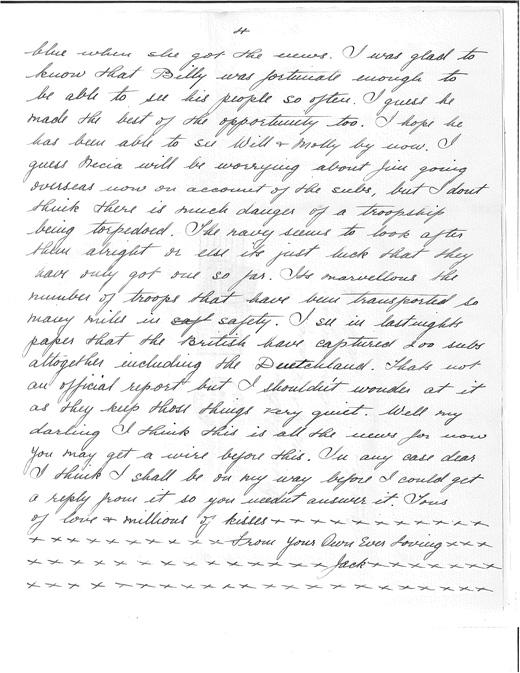 4
blue when she got the news. I was glad to
know that Billy was fortunate enough to
be able to see his people so often. I guess he
made the best of the opportunity too. I hope he
has been able to see Will & Molly by now. I
guess Necia will be worrying about Jim going
overseas now on account of the subs, but I dont
think there is much danger of a troopship
being torpedoed. The navy seems to look after
them alright or else its just luck that they
have only got one so far. Its marvellous the
number of troops that have been transported so
many miles in saf safety. I see in last nights
paper that the British have captured 200 subs
altogether including the Duetchland. Thats not
an official report but I shouldn't wonder at it
as they keep those things very quiet. Well my
darling I think this is all the news for now
You may get a wire before this. In any case dear
I think I shall be on my way before I could get
a reply from it so you neednt answer it. Tons
of love & millions of kisses x x x x x x x x x x x
x x x x x x x x x x From Your Own Ever Loving x x x
x x x x x x x x x x x x x x Jack x x x x x x x
x x x x x x x x x x x x x x x x x x x x x x